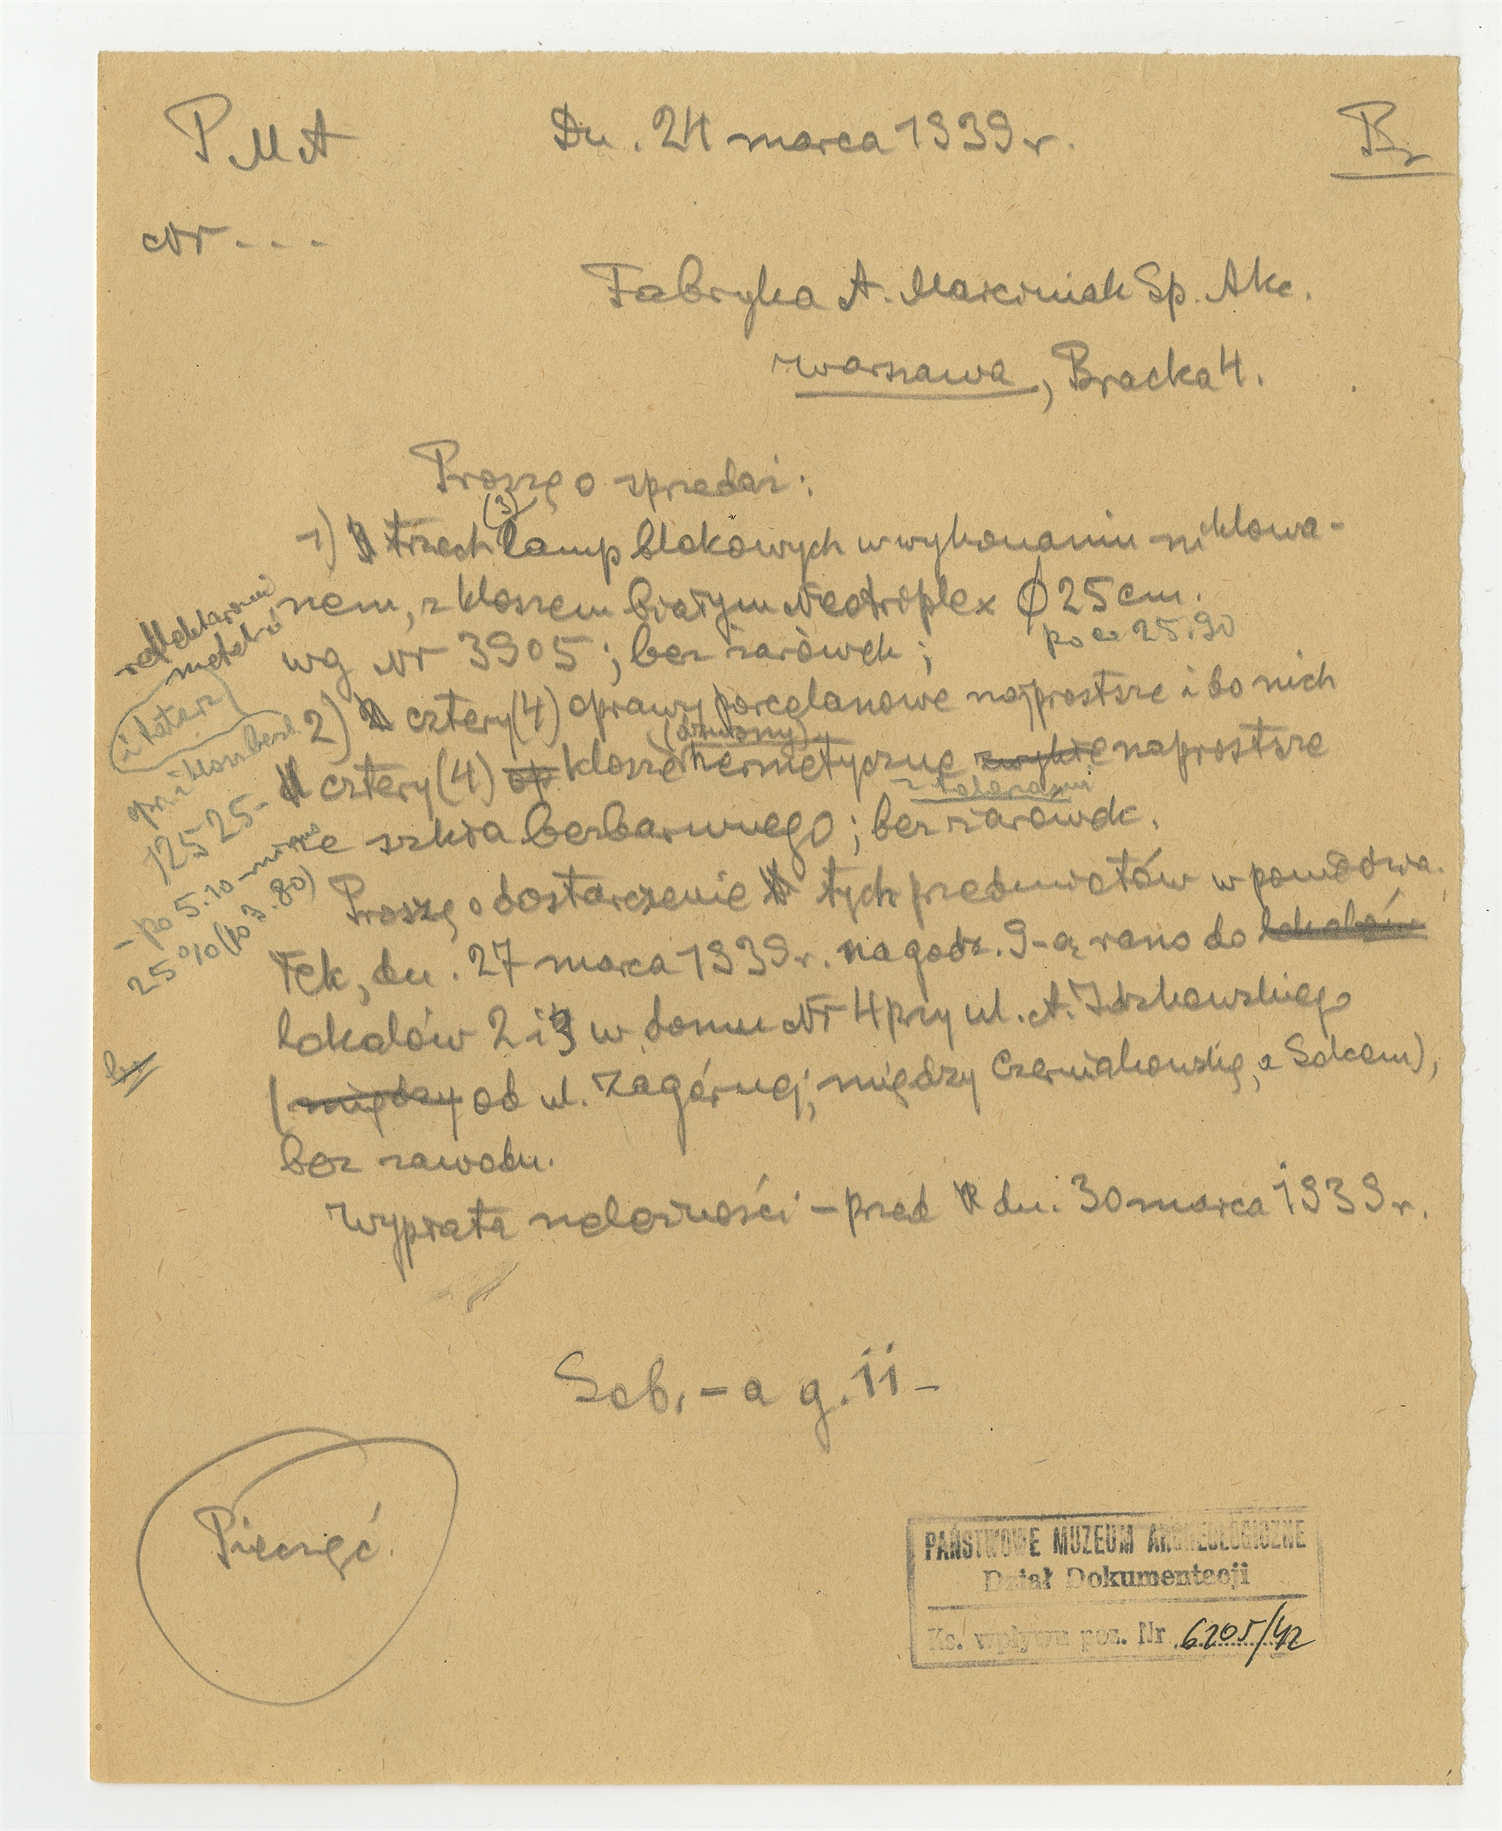 PMA Dn. 24 marca 1939 r.
Nr - - -
Fabryka A. Marciniak Sp. Akc.
Warszawa, Bracka 4.
Proszę o sprzedaż:
1) trzech (3) lamp blokowych w wykonaniu niklowa-
nem, z kloszem białym Neotroplex Ø 25 cm.
wg Nr 3905; bez żarówek;
po zł 25.90
2) cztery (4) oprawy porcelanowe najprostsze i do nich
cztery (4) klosze hermetyczne zwykłe naprostsze
ze szkła bezbarwnego; bez żarówek.
Proszę o dostarczenie tych przedmiotów w poniedzia-
łek, dn. 27 marca 1939 r. na godz. 9-ą rano do lokalów
lokalów 2 i 3 w domu Nr 4 przy ul. A. Idzkowskiego
(między od ul. Zagórnej; między Czerniakowską, a Solcem),
bez zawodu.
Wypłata należności – przed dn. 30 marca 1939 r.
reflektorami
metal.
i kołnierz
opr. i klosz bezb.
12525-
- po 5.10 -
25% (po 3.80)
Seb. - a g. ii -
Pieczęć
PAŃSTWOWE MUZEUM ARCHEOLOGICZNE
Dział Dokumentacji
Ks. wpływu poz. Nr 6205/42